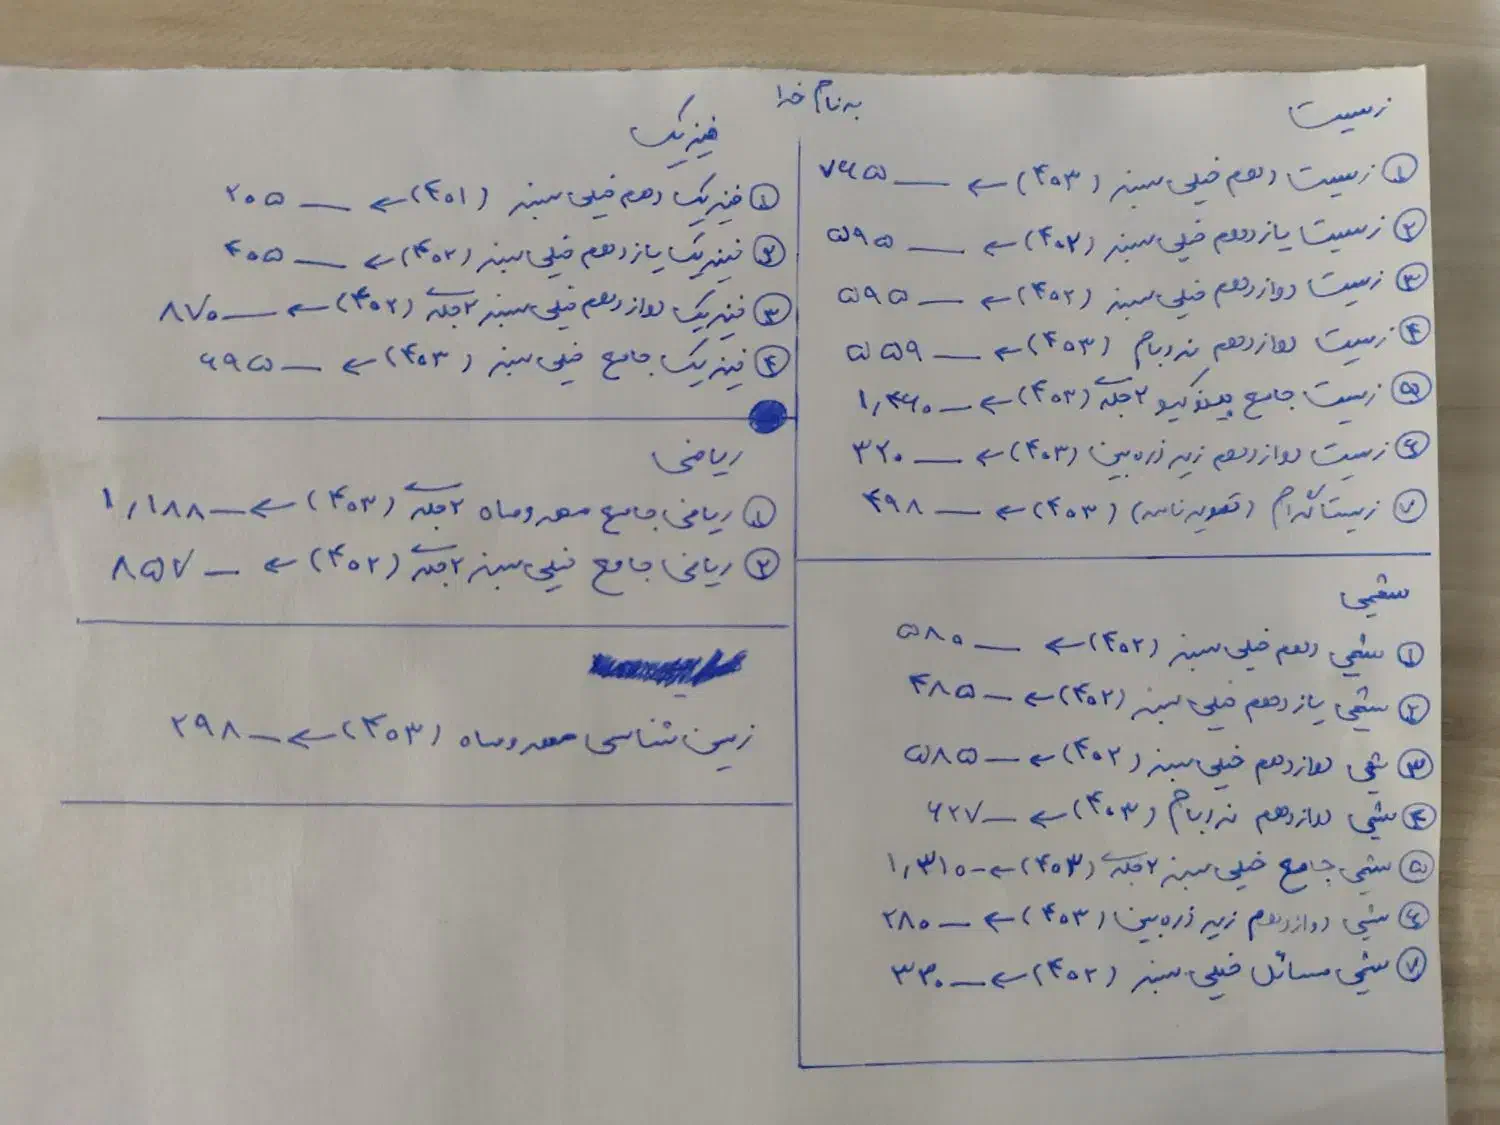 به نام خدا
زیست
① زیست دهم خیلی سبز (۴۰۳) ← — ۷۶۵
② زیست یازدهم خیلی سبز (۴۰۲) ← — ۵۹۵
③ زیست دوازدهم خیلی سبز (۴۰۲) ← — ۵۹۵
④ زیست دوازدهم نردبام (۴۰۳) ← — ۵۵۹
⑤ زیست جامع ۲ جلدی (۴۰۳) ← — ۱,۴۶۰
⑥ زیست دوازدهم زیر ذره‌بین (۴۰۳) ← — ۳۲۰
⑦ زیستاگرام (تصویرنامه) (۴۰۳) ← — ۴۹۸
شیمی
① شیمی دهم خیلی سبز (۴۰۲) ← — ۵۸۰
② شیمی یازدهم خیلی سبز (۴۰۲) ← — ۴۸۵
③ شیمی دوازدهم خیلی سبز (۴۰۲) ← — ۵۸۵
④ شیمی دوازدهم نردبام (۴۰۳) ← — ۶۲۷
⑤ شیمی جامع خیلی سبز ۲ جلدی (۴۰۳) ← — ۱,۳۱۰
⑥ شیمی دوازدهم زیر ذره‌بین (۴۰۳) ← — ۲۸۰
⑦ شیمی مسائل خیلی سبز (۴۰۲) ← — ۳۳۰
فیزیک
① فیزیک دهم خیلی سبز (۴۰۱) ← — ۲۰۵
② فیزیک یازدهم خیلی سبز (۴۰۲) ← — ۴۰۵
③ فیزیک دوازدهم خیلی سبز ۲ جلدی (۴۰۲) ← — ۸۷۰
④ فیزیک جامع خیلی سبز (۴۰۳) ← — ۶۹۵
ریاضی
① ریاضی جامع مهروماه ۲ جلدی (۴۰۳) ← — ۱,۱۸۸
② ریاضی جامع خیلی سبز ۲ جلدی (۴۰۲) ← — ۸۵۷
زمین شناسی مهروماه (۴۰۳) ← — ۲۹۸